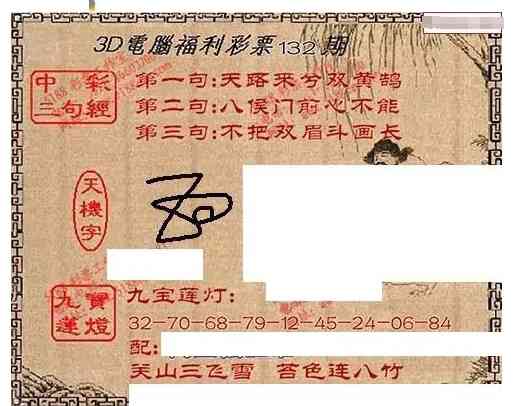 3D電腦福利彩票132期
中彩三句經
第一句:天路来兮双黄鹄
第二句:八侯门前心不能
第三句:不把双眉斗画长
天機字
九寶蓮燈
九宝莲灯:
32-70-68-79-12-45-24-06-84
配:
天山三飞雪 苔色连八竹